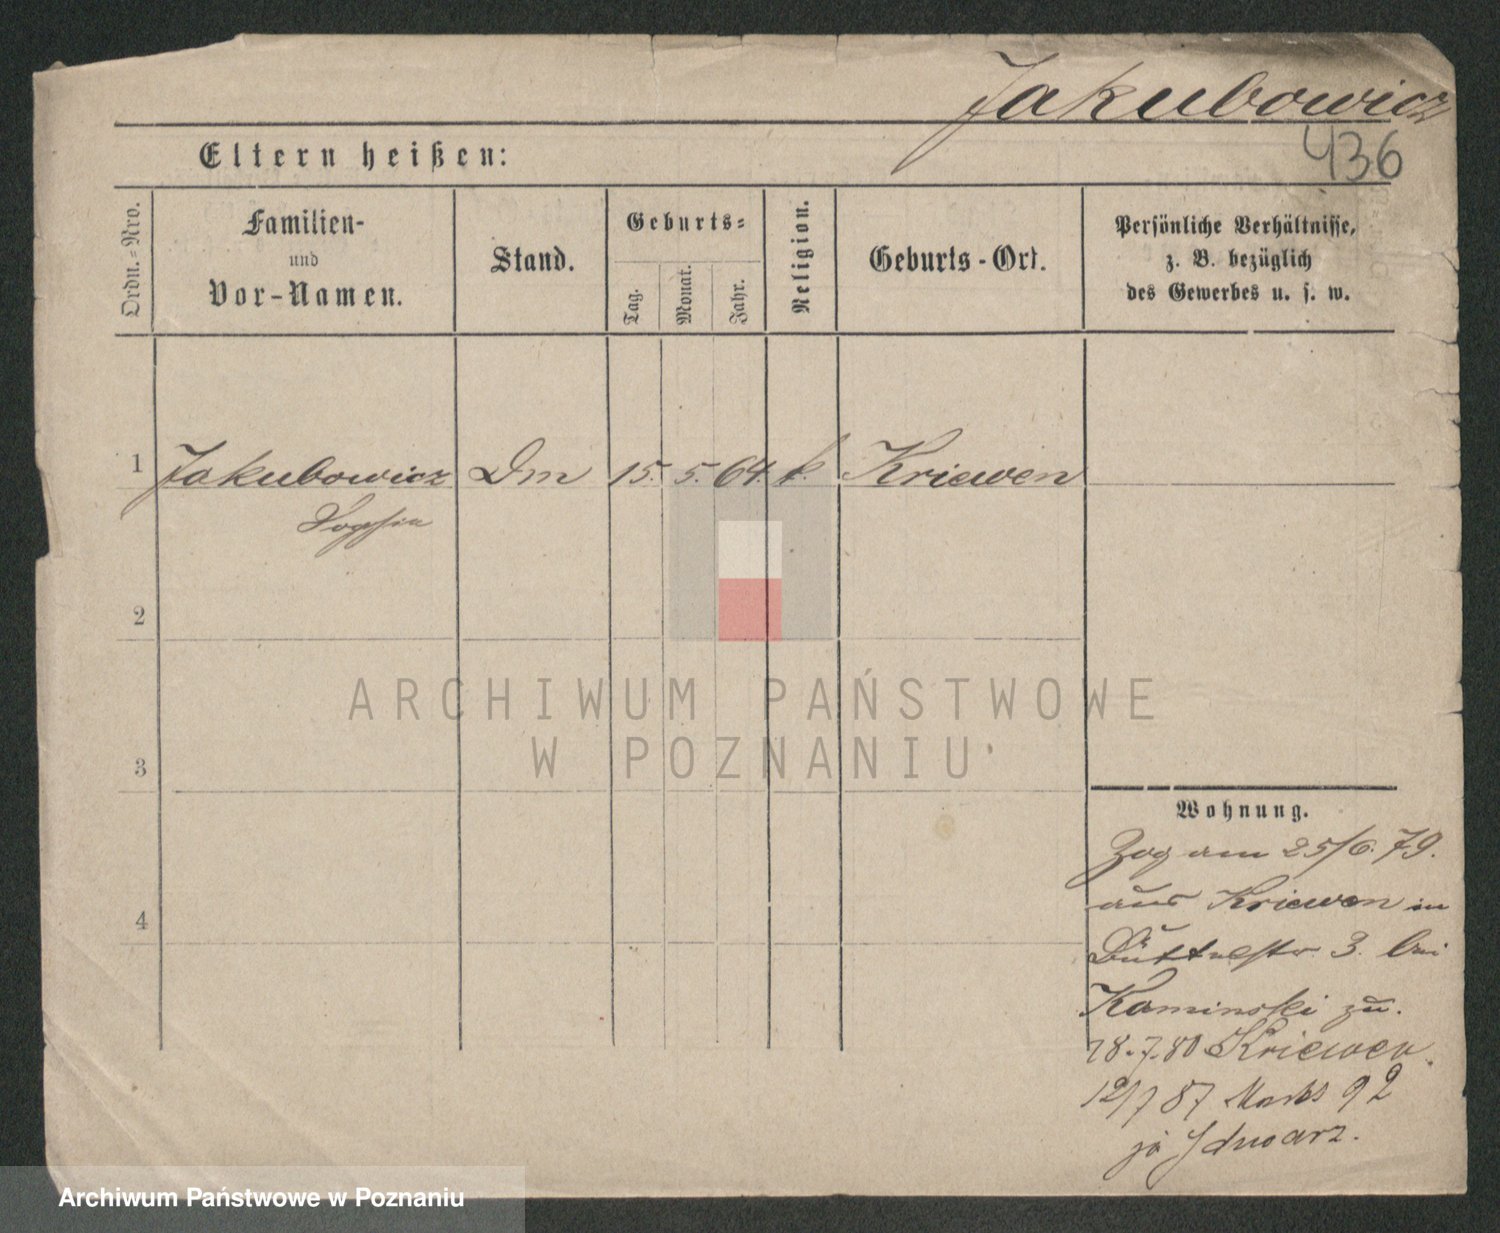 Jakubowicz
436
Eltern heißen:
Ordn.-Nro.
Familien-
und
Vor-Namen.
Stand.
Geburts-
Tag.
Monat.
Jahr.
Religion.
Geburts-Ort.
Persönliche Verhältnisse,
z. B. bezüglich
des Gewerbes u. s. w.
1 Jakubowicz Dm 15. 5. 64. k. Kriewen
Sophie
2
ARCHIWUM PAŃSTWOWE
W POZNANIU
3
Wohnung.
Zog am 25/6. 79.
aus Kriewen in
3. bei
4
Kaminski zu.
28.7.80 Kriewen.
12/7 87 Markt 92
Archiwum Państwowe w Poznaniu